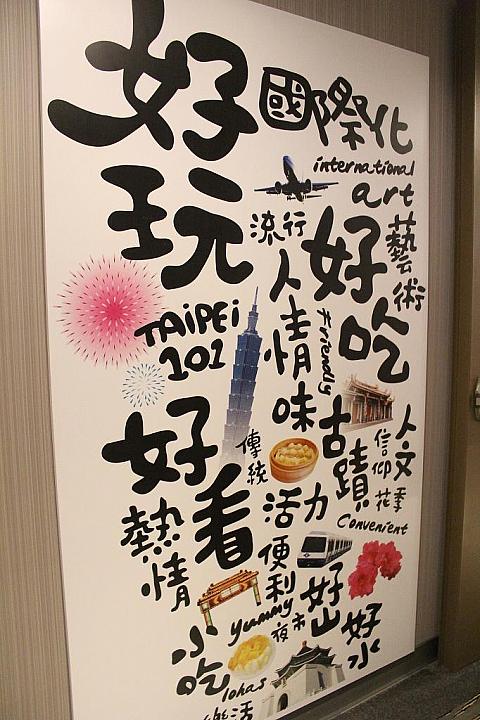 好玩
國際化
international
art
藝術
流行
好吃
人情味
friendly
TAIPEI
101
古蹟
人文
信仰
花季
傳統
好看
活力
Convenient
熱情
便利
好山
好水
yummy
夜市
小吃
lohas
活